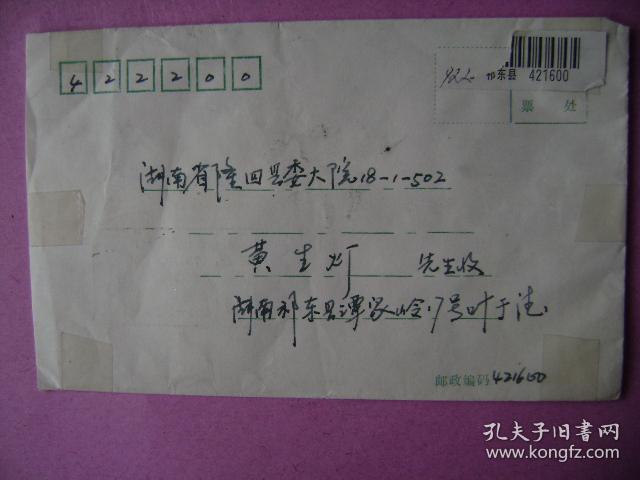 422200
祁东县 421600
票 处
湖南省隆回县委大院18-1-502
黄生灯 先生收
湖南祁东县谭家岭17号叶于
邮政编码 421600
孔夫子旧书网
www.kongfz.com